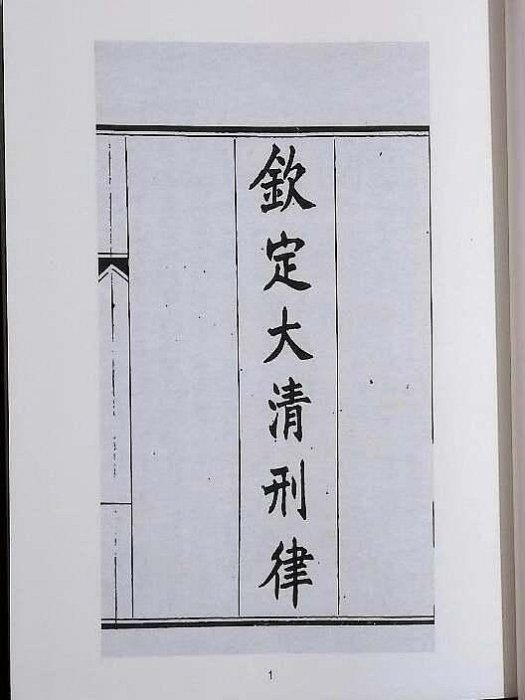 欽定大清刑律
1